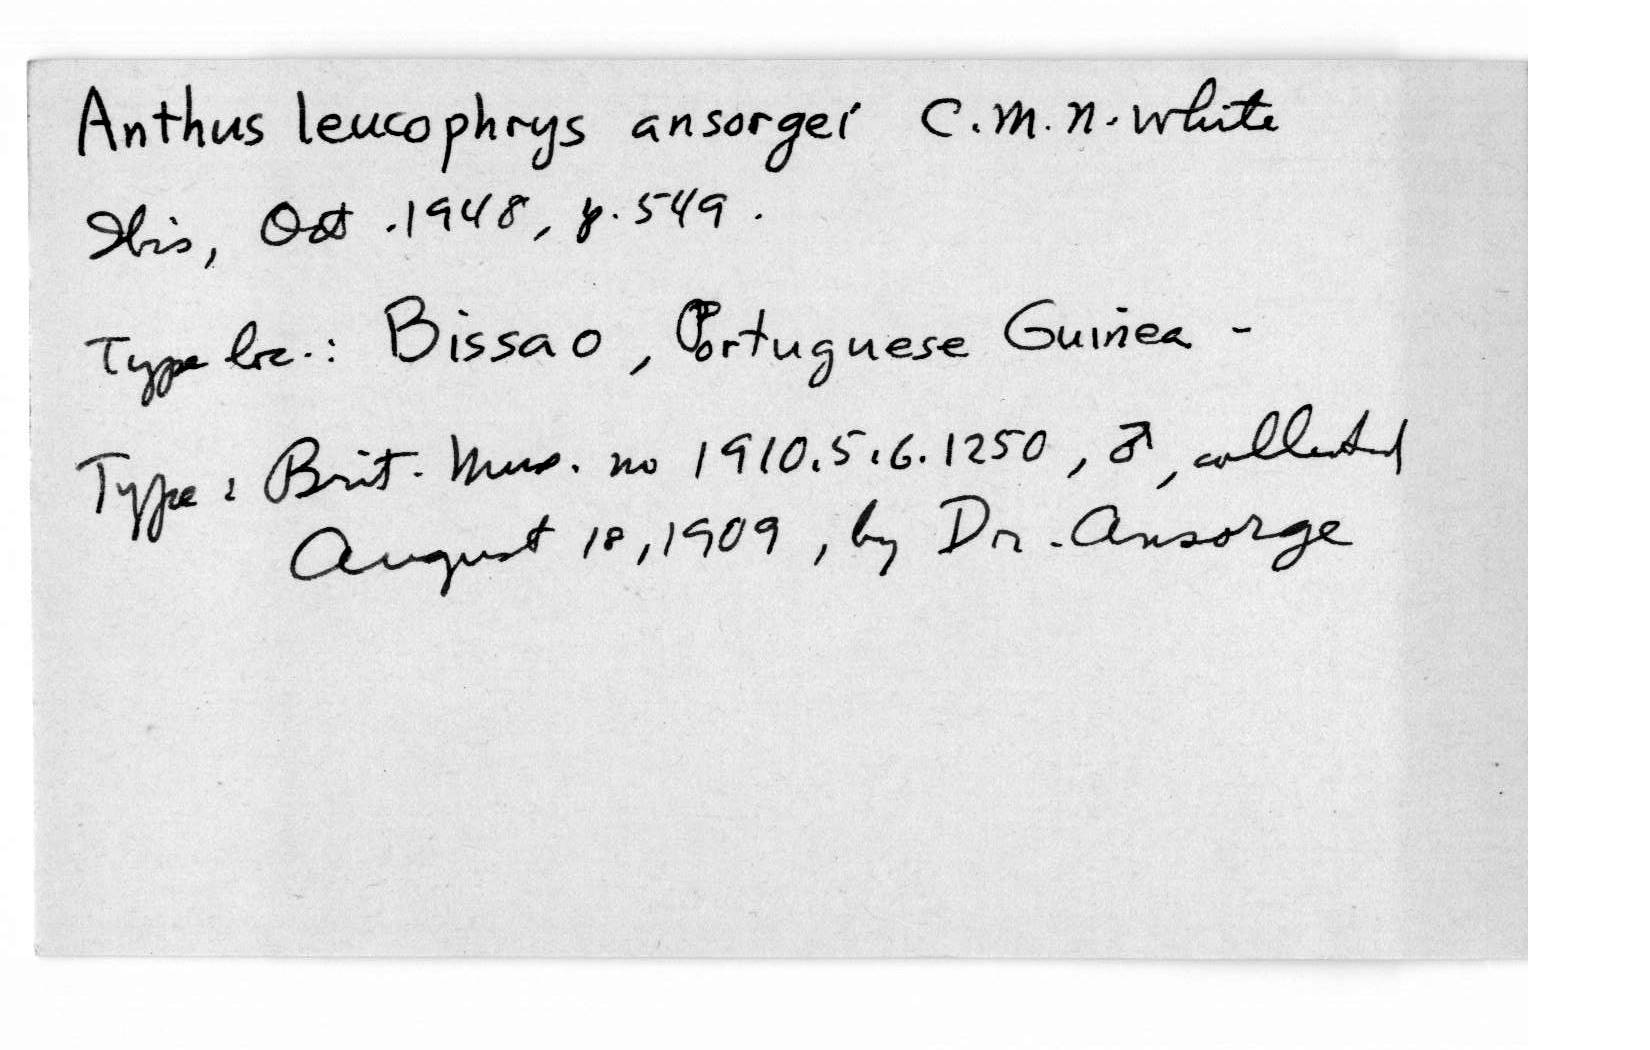 Anthus leucophrys ansorgei C.M.N. White
Ibis, Oct. 1948, p. 549.
Type loc.: Bissao, Portuguese Guinea -
Type: Brit. Mus. no 1910.5.6.1250, ♂, collected
August 18, 1909, by Dr. Ansorge